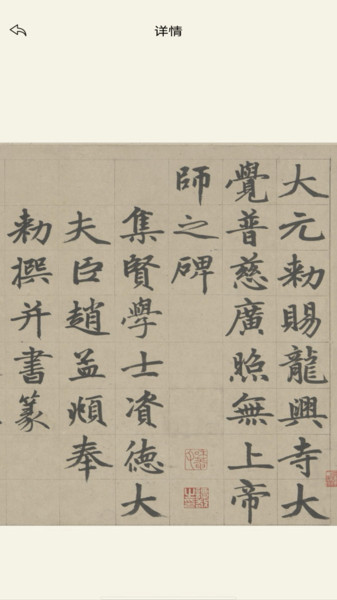 详情
大元勑賜龍興寺大
覺普慈廣照無上帝
師之碑
集賢學士資德大
夫臣趙孟頫奉
勑撰并書篆